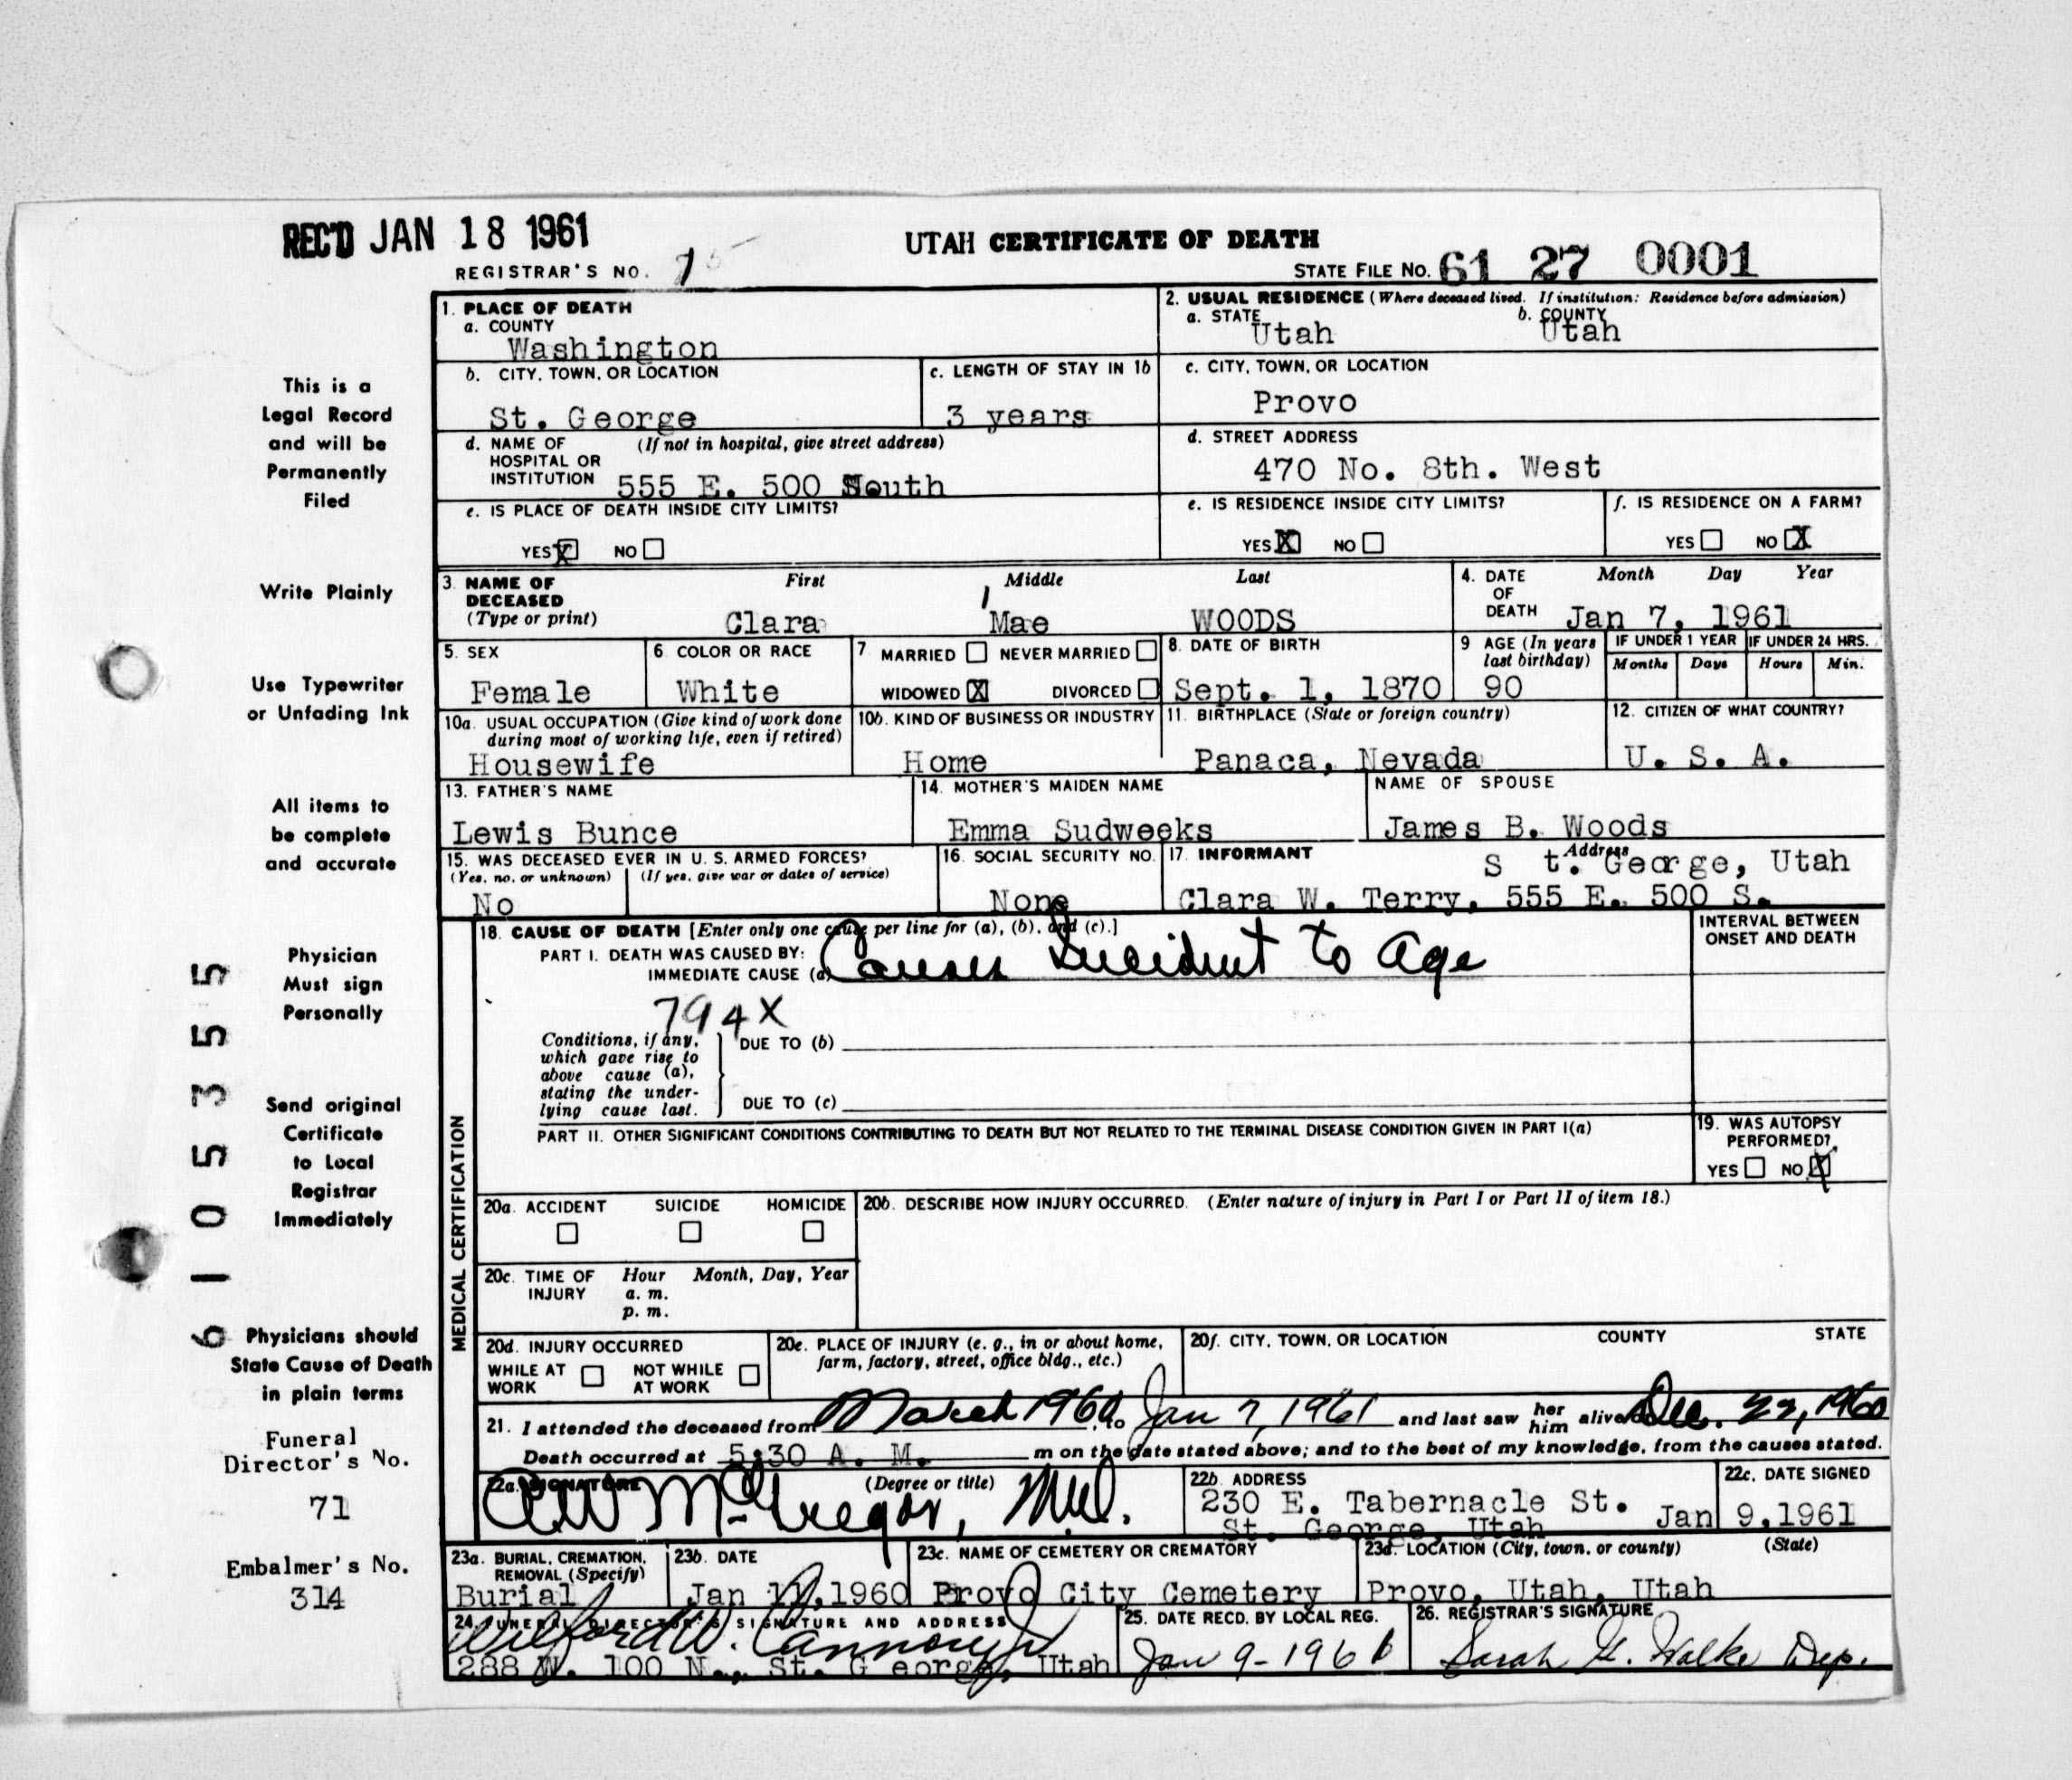 REC'D JAN 18 1961
UTAH CERTIFICATE OF DEATH
REGISTRAR'S NO. 1
STATE FILE NO. 61 27 0001
1. PLACE OF DEATH
a. COUNTY
Washington
2. USUAL RESIDENCE (Where deceased lived. If institution: Residence before admission)
a. STATE b. COUNTY
Utah Utah
b. CITY, TOWN, OR LOCATION
St. George
c. LENGTH OF STAY IN 1b
3 years
c. CITY, TOWN, OR LOCATION
Provo
d. NAME OF (If not in hospital, give street address)
HOSPITAL OR
INSTITUTION 555 E. 500 South
d. STREET ADDRESS
470 No. 8th. West
e. IS PLACE OF DEATH INSIDE CITY LIMITS?
YES X NO
e. IS RESIDENCE INSIDE CITY LIMITS?
YES X NO
f. IS RESIDENCE ON A FARM?
YES NO X
3. NAME OF First Middle Last
DECEASED
(Type or print) Clara Mae WOODS
4. DATE Month Day Year
OF
DEATH Jan 7, 1961
5. SEX
Female
6. COLOR OR RACE
White
7 MARRIED NEVER MARRIED
WIDOWED X DIVORCED
8. DATE OF BIRTH
Sept. 1, 1870
9 AGE (In years
last birthday)
90
IF UNDER 1 YEAR
Months Days
IF UNDER 24 HRS.
Hours Min.
10a. USUAL OCCUPATION (Give kind of work done
during most of working life, even if retired)
Housewife
10b. KIND OF BUSINESS OR INDUSTRY
Home
11. BIRTHPLACE (State or foreign country)
Panaca, Nevada
12. CITIZEN OF WHAT COUNTRY?
U. S. A.
13. FATHER'S NAME
Lewis Bunce
14. MOTHER'S MAIDEN NAME
Emma Sudweeks
NAME OF SPOUSE
James B. Woods
15. WAS DECEASED EVER IN U. S. ARMED FORCES?
(Yes, no, or unknown) (If yes, give war or dates of service)
No
16. SOCIAL SECURITY NO.
None
17. INFORMANT Address
S t. George, Utah
Clara W. Terry, 555 E. 500 S.
MEDICAL CERTIFICATION
18. CAUSE OF DEATH [Enter only one cause per line for (a), (b), and (c).]
PART I. DEATH WAS CAUSED BY:
IMMEDIATE CAUSE (a) Causes Incident to Age
INTERVAL BETWEEN
ONSET AND DEATH
794X
Conditions, if any,
which gave rise to
above cause (a),
stating the under-
lying cause last.
DUE TO (b)
DUE TO (c)
PART II. OTHER SIGNIFICANT CONDITIONS CONTRIBUTING TO DEATH BUT NOT RELATED TO THE TERMINAL DISEASE CONDITION GIVEN IN PART I(a)
19. WAS AUTOPSY
PERFORMED?
YES NO X
20a. ACCIDENT SUICIDE HOMICIDE
20b. DESCRIBE HOW INJURY OCCURRED. (Enter nature of injury in Part I or Part II of item 18.)
20c. TIME OF Hour Month, Day, Year
INJURY a. m.
p. m.
20d. INJURY OCCURRED
WHILE AT NOT WHILE
WORK AT WORK
20e. PLACE OF INJURY (e. g., in or about home,
farm, factory, street, office bldg., etc.)
20f. CITY, TOWN, OR LOCATION COUNTY STATE
21. I attended the deceased from March 1960, to Jan 7, 1961 and last saw her him alive Dec. 22, 1960
Death occurred at 5:30 A. M. m on the date stated above; and to the best of my knowledge, from the causes stated.
22a. SIGNATURE (Degree or title)
A W McGregor, M.D.
22b. ADDRESS
230 E. Tabernacle St.
St. George, Utah
22c. DATE SIGNED
Jan 9,1961
23a. BURIAL, CREMATION,
REMOVAL (Specify)
Burial
23b. DATE
Jan 11,1960
23c. NAME OF CEMETERY OR CREMATORY
Provo City Cemetery
23d. LOCATION (City, town, or county) (State)
Provo, Utah, Utah
24. FUNERAL DIRECTOR'S SIGNATURE AND ADDRESS
Wilford W. Cannon Jr
288 W. 100 N., St. G eorge, Utah
25. DATE RECD. BY LOCAL REG.
Jan 9-1961
26. REGISTRAR'S SIGNATURE
Sarah G. Walke Dep.
This is a
Legal Record
and will be
Permanently
Filed
Write Plainly
Use Typewriter
or Unfading Ink
All items to
be complete
and accurate
Physician
Must sign
Personally
Send original
Certificate
to Local
Registrar
Immediately
Physicians should
State Cause of Death
in plain terms
Funeral
Director's No.
71
Embalmer's No.
314
61 05355